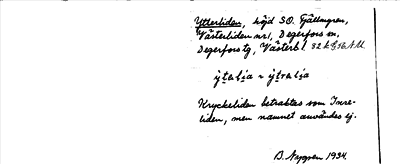 Ytterliden, höjd SO. Fjällmyren,
Västerliden nr 1, Degerfors sn,
Degerfors tg, Västerb l.
Kryckeliden betraktas som Inre-
liden, men namnet användes ej.
B. Nygren 1934.